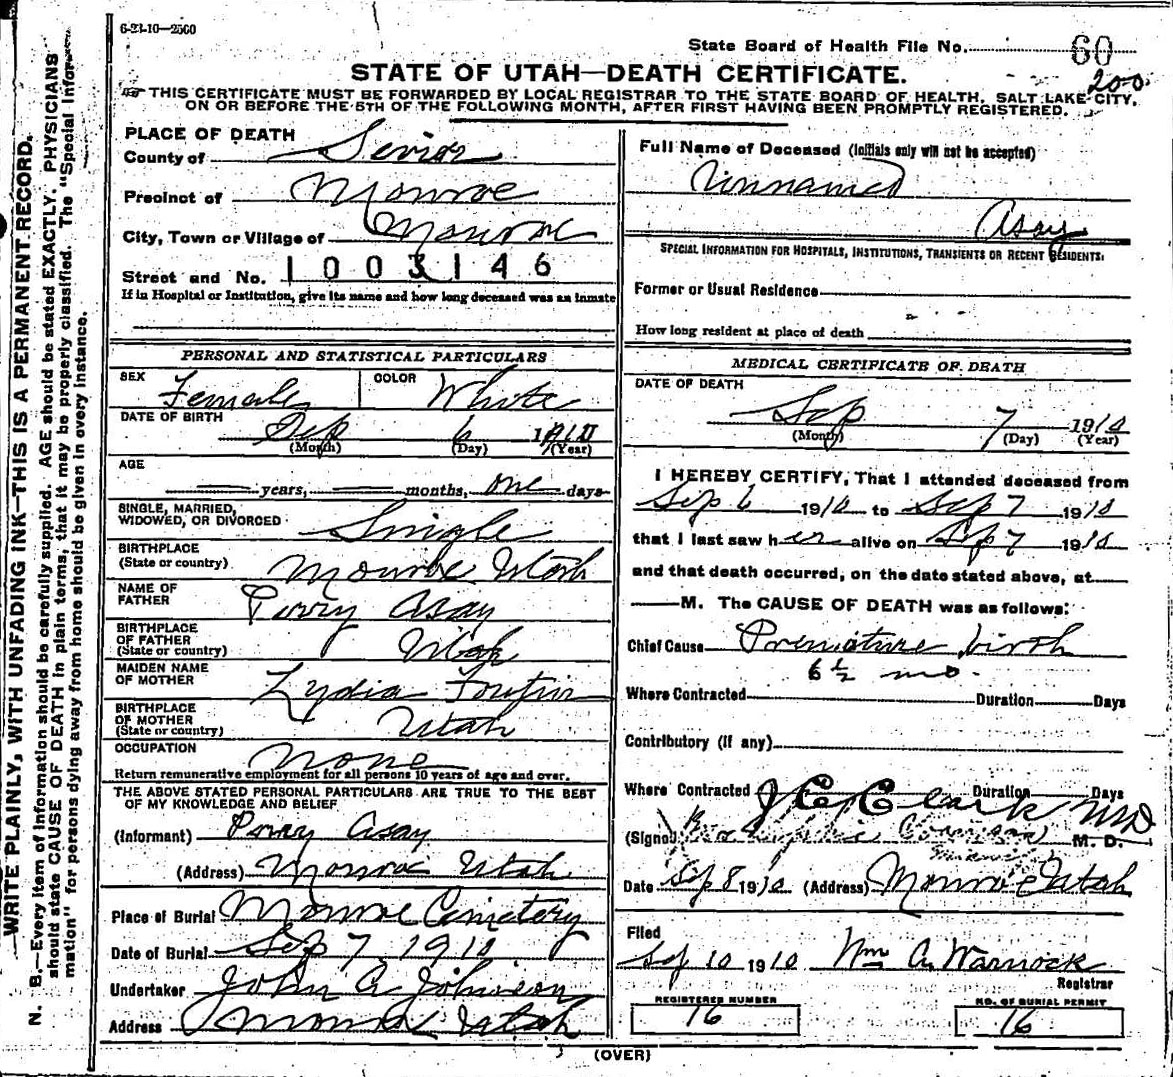 6-23-10—2500
State Board of Health File No. 60
STATE OF UTAH—DEATH CERTIFICATE.
200
☞ THIS CERTIFICATE MUST BE FORWARDED BY LOCAL REGISTRAR TO THE STATE BOARD OF HEALTH, SALT LAKE CITY,
ON OR BEFORE THE 5TH OF THE FOLLOWING MONTH, AFTER FIRST HAVING BEEN PROMPTLY REGISTERED.
WRITE PLAINLY, WITH UNFADING INK—THIS IS A PERMANENT RECORD.
N. B.—Every item of information should be carefully supplied. AGE should be stated EXACTLY. PHYSICIANS
should state CAUSE OF DEATH in plain terms, that it may be properly classified. The "Special Infor-
mation" for persons dying away from home should be given in every instance.
PLACE OF DEATH
County of Sevier
Precinct of Monroe
City, Town or Village of Monroe
Street and No. 1003146
If in Hospital or Institution, give its name and how long deceased was an inmate
PERSONAL AND STATISTICAL PARTICULARS
SEX Female COLOR White
DATE OF BIRTH Sep 6 1910
(Month) (Day) (Year)
AGE
years, months, one days
SINGLE, MARRIED,
WIDOWED, OR DIVORCED Single
BIRTHPLACE
(State or country) Monroe Utah
NAME OF
FATHER Perry Asay
BIRTHPLACE
OF FATHER
(State or country) Utah
MAIDEN NAME
OF MOTHER Lydia
BIRTHPLACE
OF MOTHER
(State or country) Utah
OCCUPATION None
Return remunerative employment for all persons 10 years of age and over.
THE ABOVE STATED PERSONAL PARTICULARS ARE TRUE TO THE BEST
OF MY KNOWLEDGE AND BELIEF
(Informant) Perry Asay
(Address) Monroe Utah
Place of Burial Monroe Cemetery
Date of Burial Sep 7 1910
Undertaker John A. Johnson
Address Monroe Utah
Full Name of Deceased (Initials only will not be accepted)
Unnamed
Asay
SPECIAL INFORMATION FOR HOSPITALS, INSTITUTIONS, TRANSIENTS OR RECENT RESIDENTS.
Former or Usual Residence
How long resident at place of death
MEDICAL CERTIFICATE OF DEATH
DATE OF DEATH
Sep 7 1910
(Month) (Day) (Year)
I HEREBY CERTIFY, That I attended deceased from
Sep 6 1910 to Sep 7 1910
that I last saw her alive on Sep 7 1910
and that death occurred, on the date stated above, at
M. The CAUSE OF DEATH was as follows:
Chief Cause Premature birth
6½ mo.
Where Contracted Duration Days
Contributory (if any)
Where Contracted Duration Days
J C Clark MD
(Signed) M. D.
Date Sep 8 1910 (Address) Monroe Utah
Filed
Sep 10 1910 Wm A. Warnock
Registrar
REGISTERED NUMBER
16
NO. OF BURIAL PERMIT
16
(OVER)